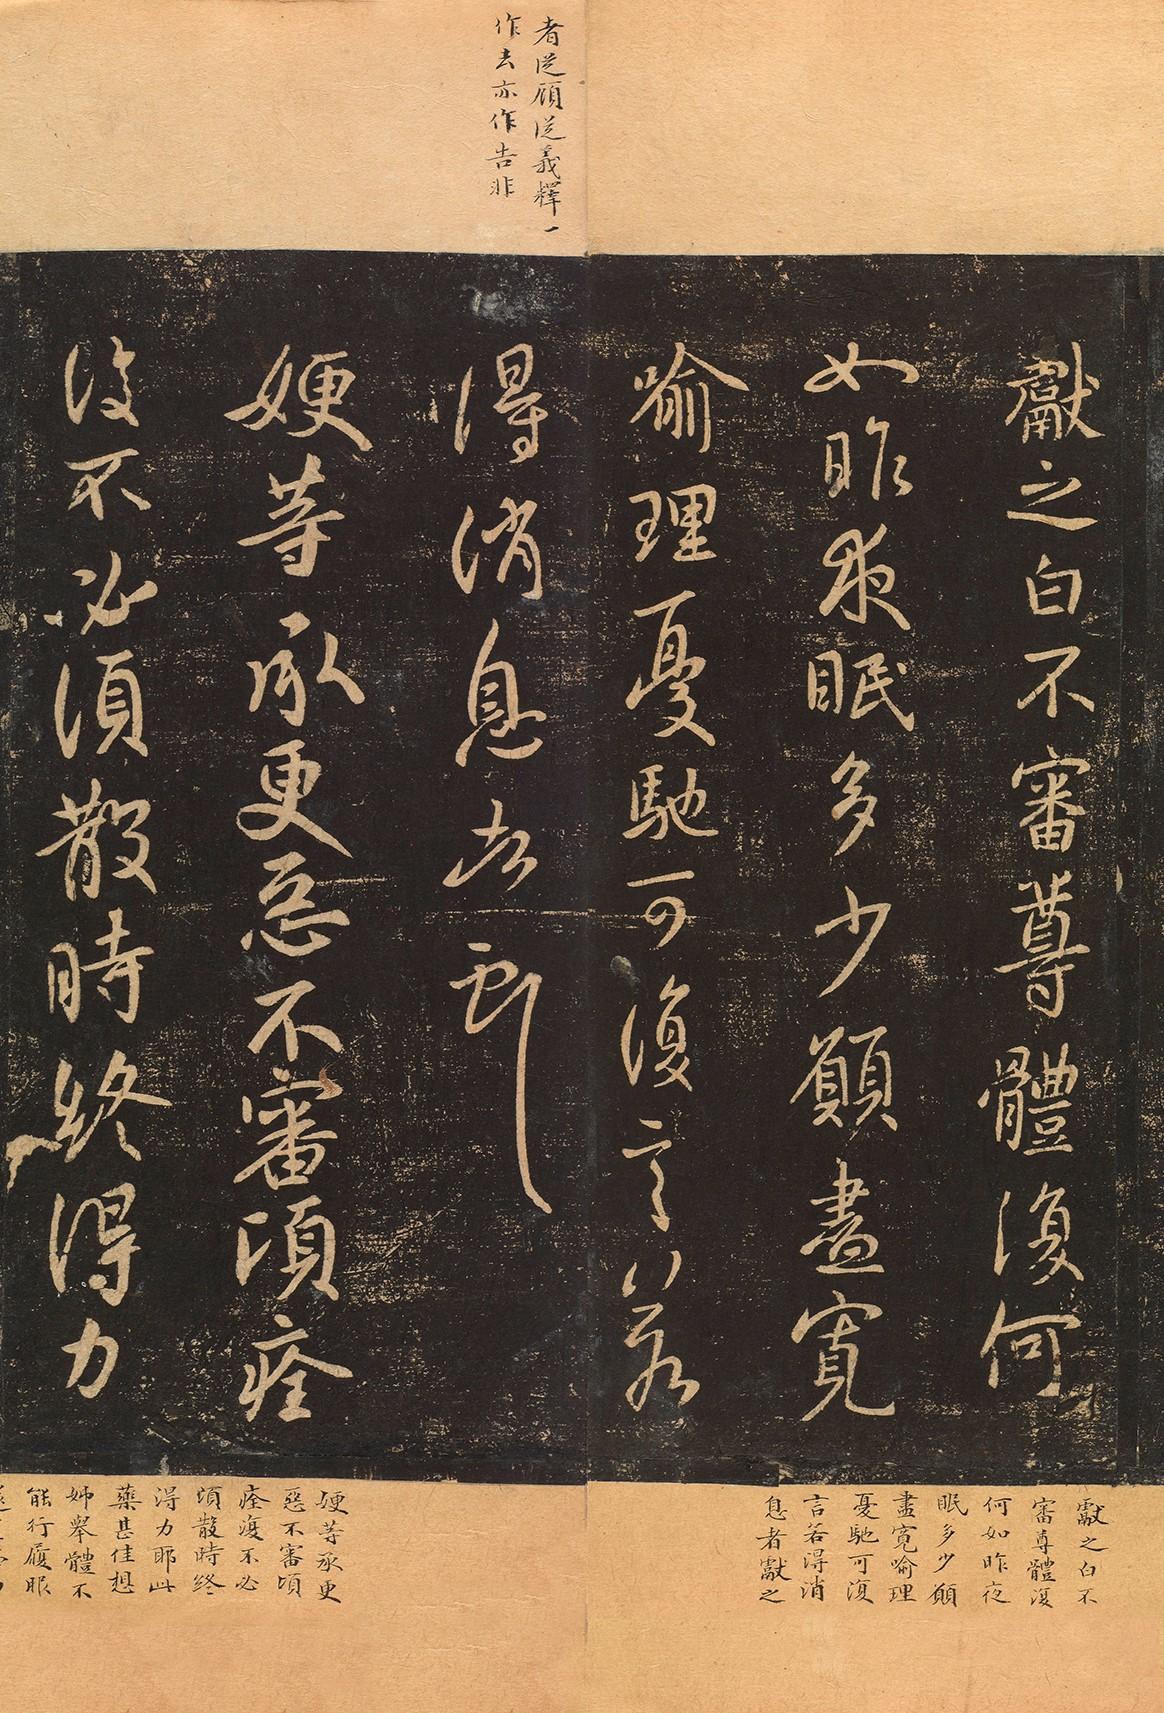 者從顧從義釋一
作去亦作告非
獻之白不審尊體復何
如昨夜眠多少願盡寬
喻理憂馳可復言若
得消息者獻之
娅等承更惡不審頃痊
復不必須散時終得力
獻之白不
審尊體復
何如昨夜
眠多少願
盡寬喻理
憂馳可復
言若得消
息者獻之
娅等承更
惡不審頃
痊復不必
須散時終
得力耶此
藥甚佳想
姊舉體不
能行履眠